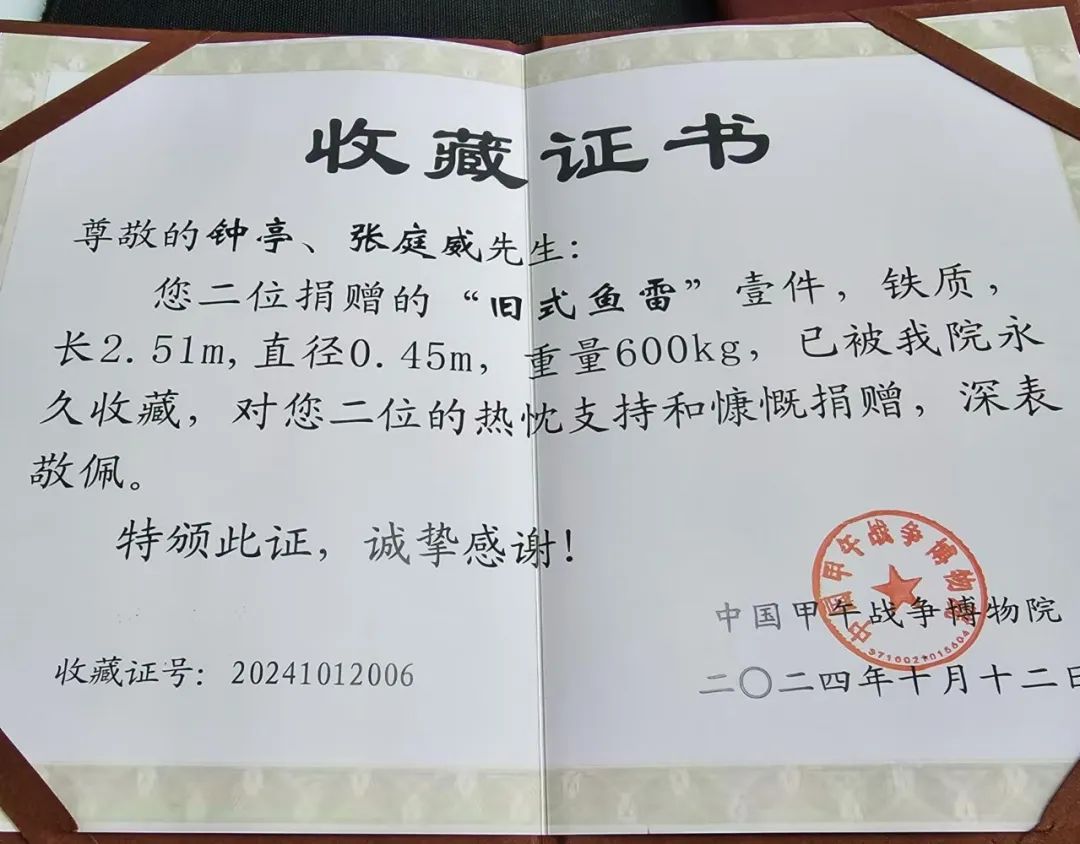 收藏证书
尊敬的钟亭、张庭威先生：
您二位捐赠的“旧式鱼雷”壹件，铁质，
长2.51m,直径0.45m，重量600kg，已被我院永
久收藏，对您二位的热忱支持和慷慨捐赠，深表
敬佩。
特颁此证，诚挚感谢！
中国甲午战争博物院
中国甲午战争博物院
收藏证号：20241012006
二〇二四年十月十二日